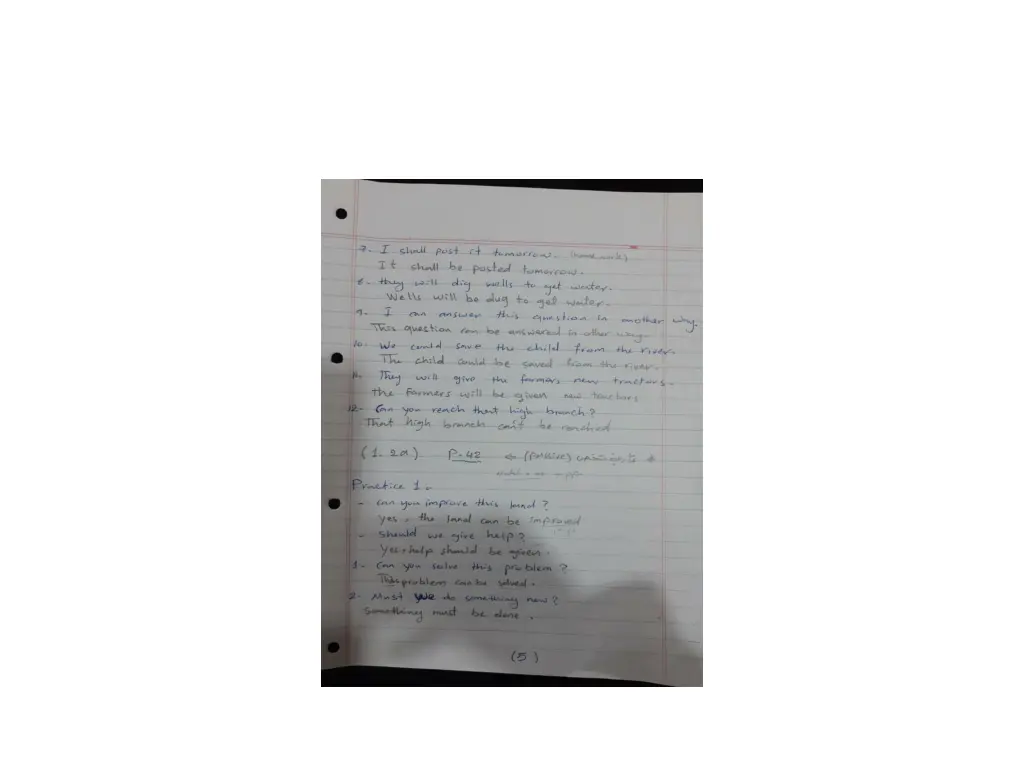 7- I shall post it tomorrow. (home work)
It shall be posted tomorrow.
8- they will dig wells to get water.
Wells will be dug to get water.
9- I can answer this question in another way.
This question can be answered in other way.
10- We could save the child from the river.
The child could be saved from the river.
11- They will give the farmers new tractors.
the Farmers will be given new tractors
12- Can you reach that high branch?
That high branch can't be reached
(1. 2a) P.42 ← (passive)
Practice 1-
- can you improve this land?
yes, the land can be improved
- should we give help?
Yes, help should be given.
1- Can you solve this problem?
This problem can be solved.
2- Must we do something new?
something must be done.
(5)